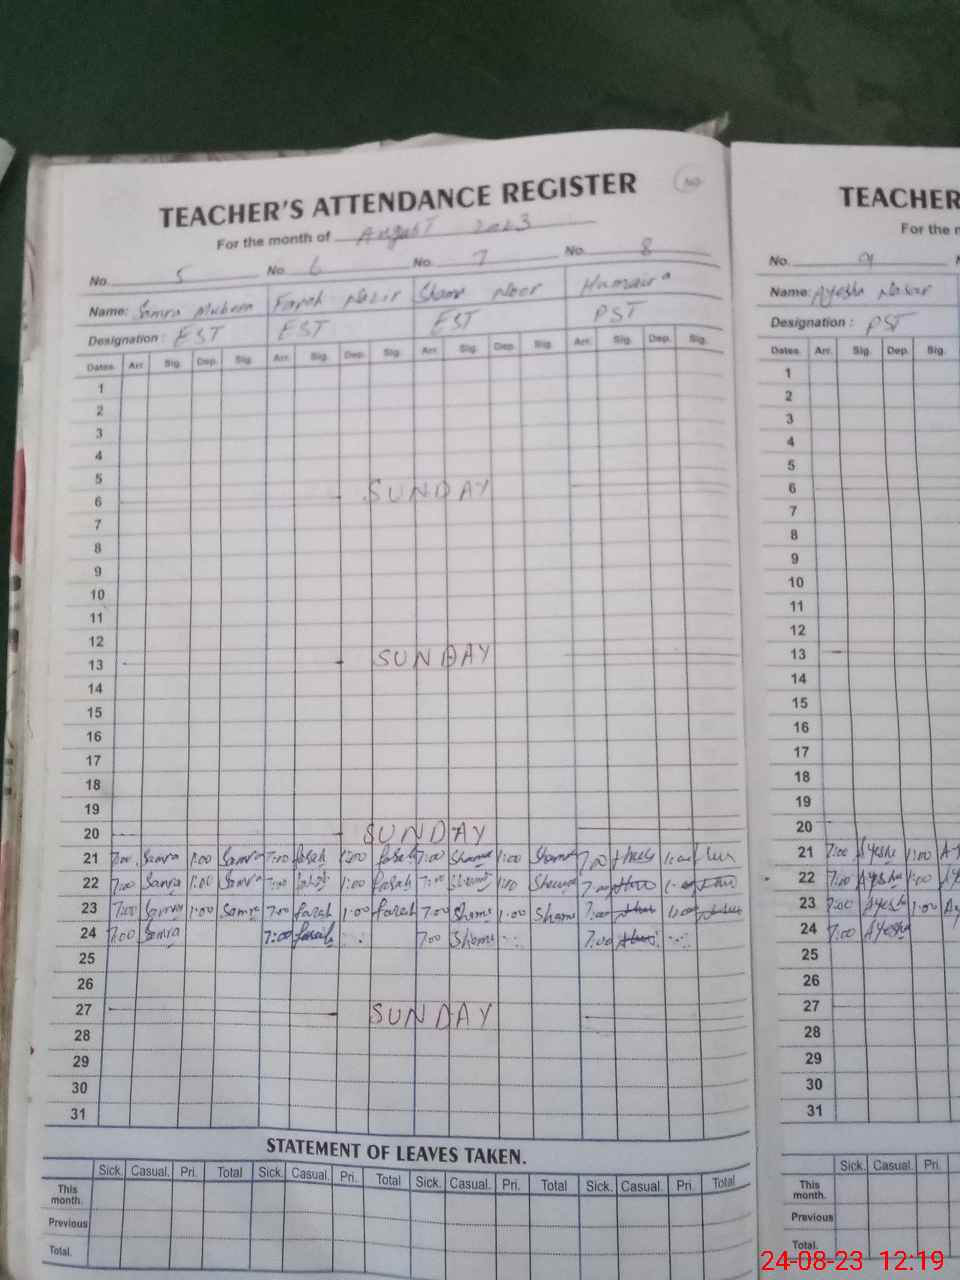 TEACHER'S ATTENDANCE REGISTER
For the month of August 2023
No. 5 No. 6 No. 7 No. 8
Name: Samra Mubeen Farah Nazir Shama Noor Humaira
Designation : EST EST EST PST
Dates. Arr. Sig. Dep. Sig. Arr. Sig. Dep. Sig. Arr. Sig. Dep. Sig. Arr. Sig. Dep. Sig.
1
2
3
4
5
6 SUNDAY
7
8
9
10
11
12
13 SUNDAY
14
15
16
17
18
19
20 SUNDAY
21 7:00 Samra 1:00 Samra 7:00 farah 1:00 farah 7:00 Shama 1:00 Shama 7:00 1:00
22 7:00 Samra 1:00 Samra 7:00 farah 1:00 farah 7:00 Shama 1:00 Shama 7:00 1:00
23 7:00 Samra 1:00 Samra 7:00 farah 1:00 farah 7:00 Shama 1:00 Shama 7:00 1:00
24 7:00 Samra 7:00 farah 7:00 Shama 7:00
25
26
27 SUNDAY
28
29
30
31
STATEMENT OF LEAVES TAKEN.
Sick. Casual. Pri. Total Sick. Casual. Pri. Total Sick. Casual. Pri. Total Sick. Casual. Pri. Total
This
month.
Previous
Total.
TEACHER
For the m
No. 9
Name: Ayesha Nasar
Designation : PST
Dates. Arr. Sig. Dep. Sig.
1
2
3
4
5
6
7
8
9
10
11
12
13
14
15
16
17
18
19
20
21 7:00 Ayesha 1:00 Ay
22 7:00 Ayesha 1:00 Ay
23 7:00 Ayesha 1:00 Ay
24 7:00 Ayesha
25
26
27
28
29
30
31
Sick. Casual. Pri.
This
month.
Previous
Total.
24-08-23 12:19